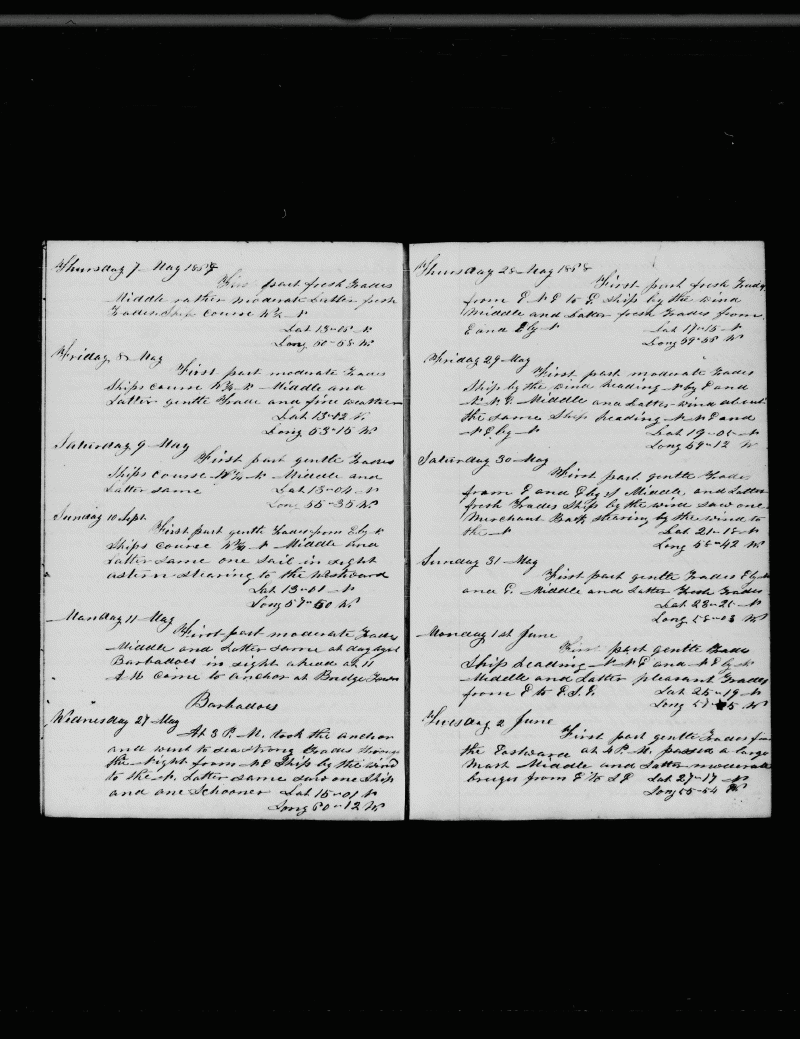 Thursday 7 May 1857
First part fresh Trades
Middle rather moderate Latter fresh
Trades Ship course W ¾ N
Lat 13-05 N
Long 50-58 W
Friday 8 May
First part moderate Trades
Ships course W ¾ N Middle and
Latter gentle Trade and fine weather
Lat 13-12 N
Long 53-15 W
Saturday 9 May
First part gentle Trades
Ships course W ¾ N Middle and
Latter same Lat 13-04 N
Long 55-35 W
Sunday 10 Sept
First part gentle Trades from E by N
Ships course W ¾ N Middle and
Latter same one Sail in sight
astern stearing to the Westward
Lat 13-01 N
Long 57-50 W
Monday 11 May
First part moderate Trades
Middle and Latter same at day light
Barbadoes in sight ahead at 11
A M came to anchor at Bridge Town
Barbadoes
Wednesday 27 May
At 3 P. M. took the anchor
and went to sea strong Trades through
the Night from N E Ship by the wind
to the N. Latter same saw one Ship
and one Schooner Lat 15-01 N
Long 60-12 W
Thursday 28 May 1858
First part fresh Trades
from E N E to E Ship by the wind
Middle and Latter fresh Trades from
E and E by N Lat 17-15 N
Long 59-55 W
Friday 29 May
First part moderate Trades
Ship by the wind heading N by E and
N N E Middle and Latter wind about
the same Ship heading N N E and
N E by N Lat 19-05 N
Long 59-12 W
Saturday 30 May
First part gentle Trades
from E and E by S Middle, and Latter
fresh Trades Ship by the wind saw one
Merchant Bark stearing by the wind to
the N Lat 21-18 N
Long 58-42 W
Sunday 31 May
First part gentle Trades E by N
and E. Middle and Latter fresh Trades
Lat 23-21 N
Long 58-03 W
Monday 1st June
First part gentle Trades
Ship heading N N E and N E by N
Middle and Latter pleasant Trades
from E to E.S.E. Lat 25-19 N
Long 57-05 W
Tuesday 2 June
First part gentle Trades from
the Eastward at 4 P. M. passed a large
Mast Middle and Latter moderate
breezes from E to S E Lat 27-17 N
Long 55-54 W